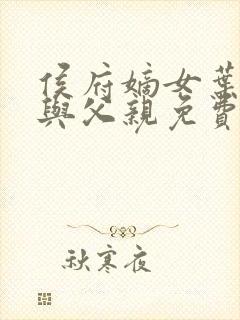 侯府嫡女葉
與父親免費
秋寒夜